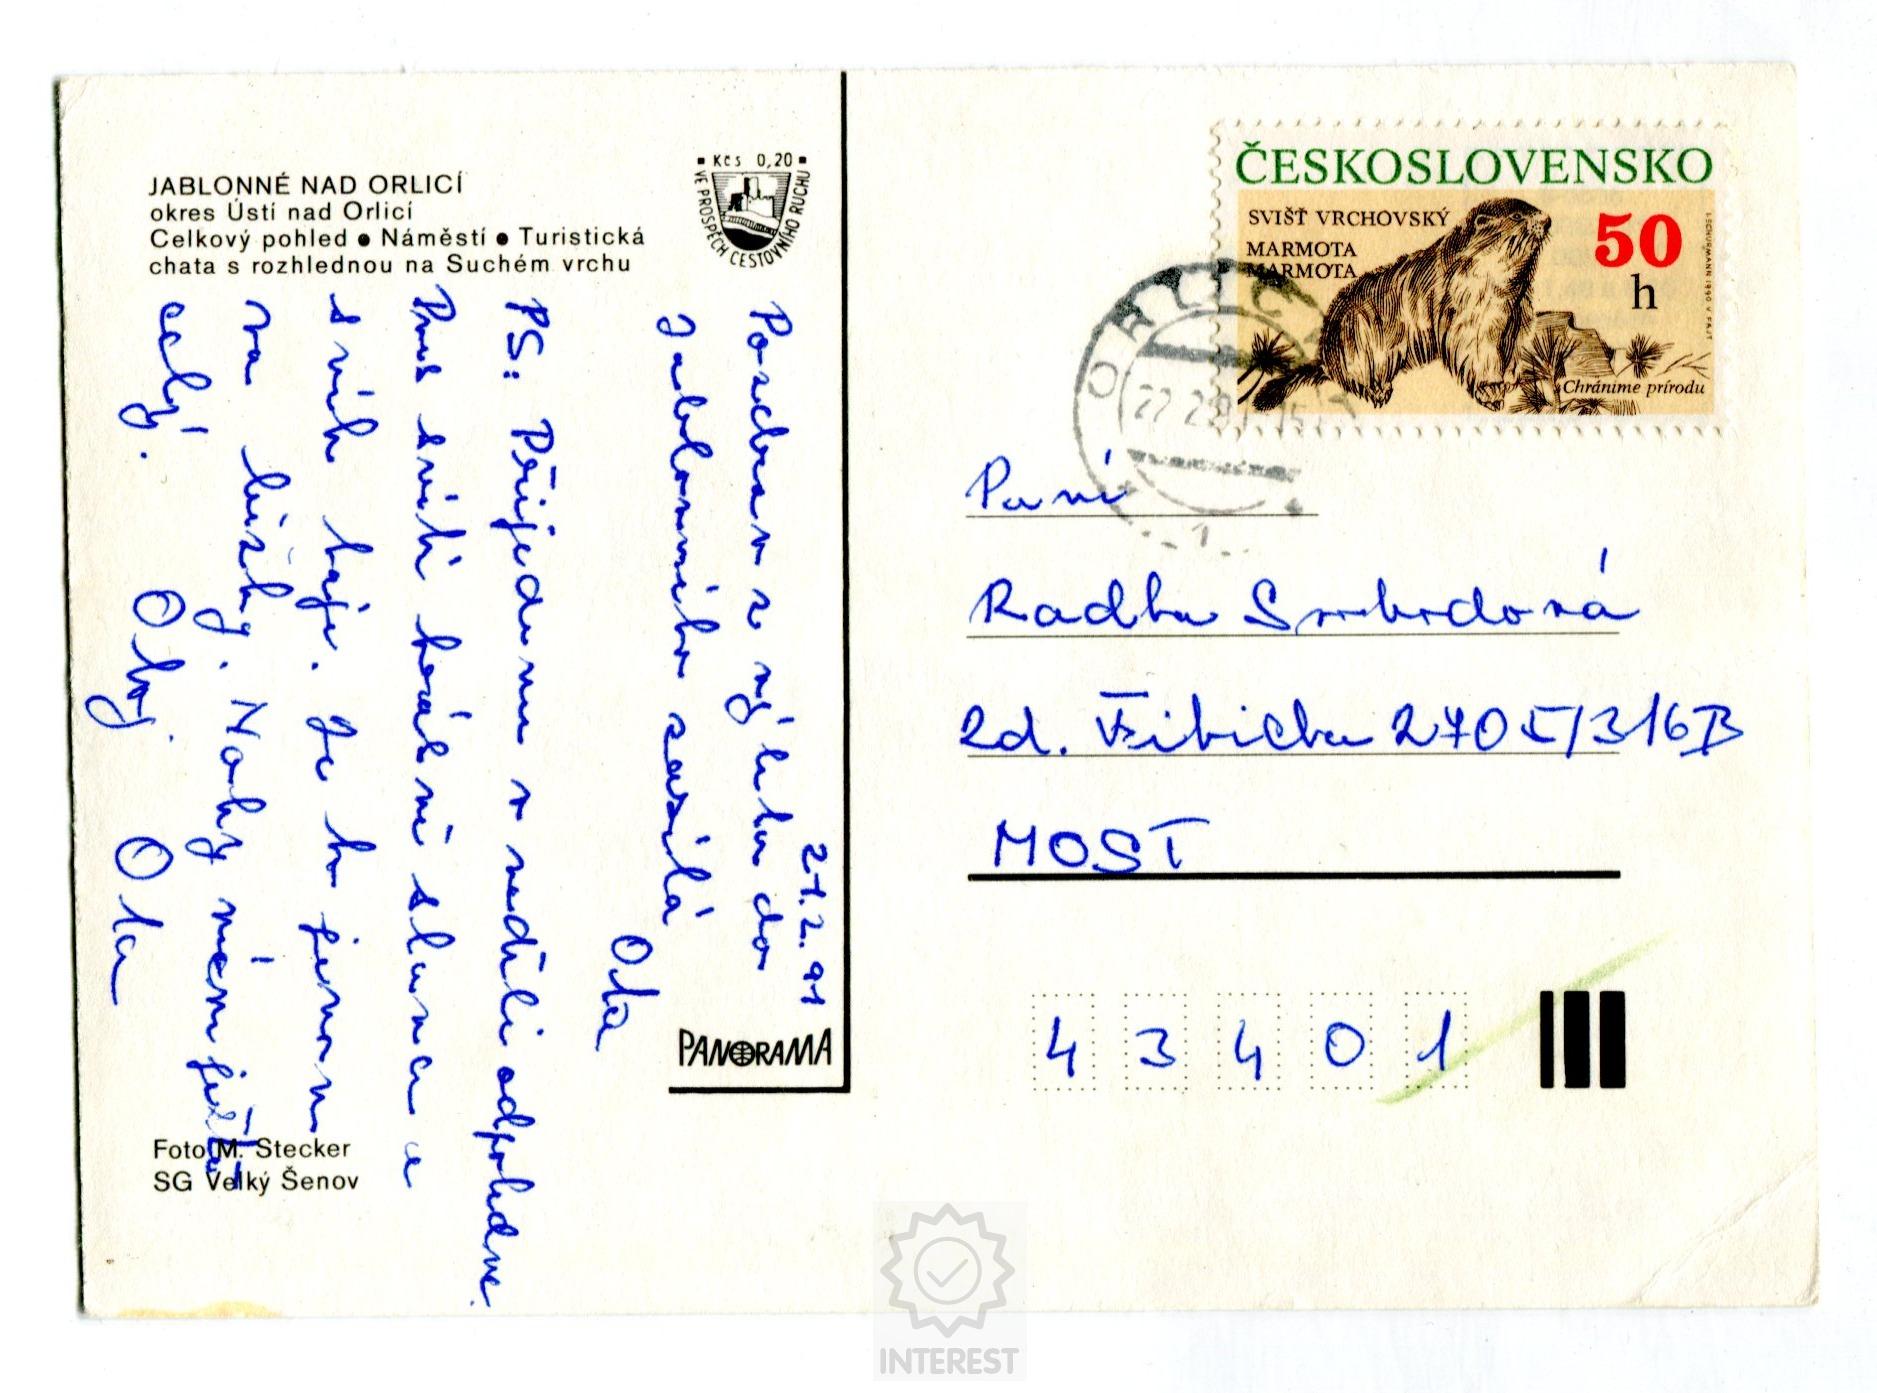 JABLONNÉ NAD ORLICÍ
okres Ústí nad Orlicí
Celkový pohled • Náměstí • Turistická
chata s rozhlednou na Suchém vrchu
▪ Kčs 0,20 ▪
VE PROSPĚCH CESTOVNÍHO RUCHU
21.2.91
Pozdrav z výletu do
Jablonného zasílá
Ota
PS: Přijedeme v neděli odpoledne.
Dnes svítí krásně slunce a
sníh taje. Je to jenom
na lůžky. Nohy mám ještě
celý.
Ahoj. Ota
PANORAMA
Foto M. Stecker
SG Velký Šenov
ČESKOSLOVENSKO
SVIŠŤ VRCHOVSKÝ
MARMOTA
MARMOTA
50
h
Chráníme prírodu
I. SCHURMANN 1990 V. FAJT
ORLICÍ
Paní
Radka Svobodová
Zd. Fibicha 2705/316B
MOST
43401
INTEREST